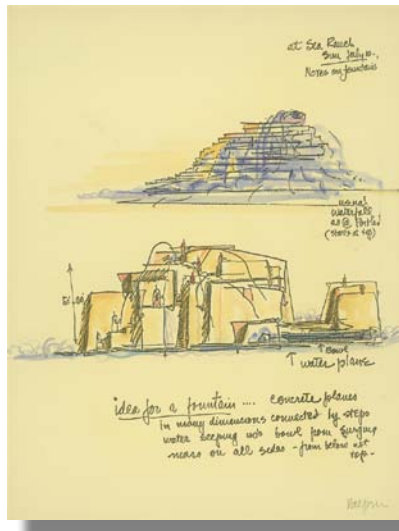 at Sea Ranch
Sun July 10.,
Notes on fountain
usual
waterfall
as @
↑ Bowl
↑ water plane
idea for a fountain .... concrete planes
In many dimensions connected by steps
water seeping into bowl from
on all sides - from below not
top.